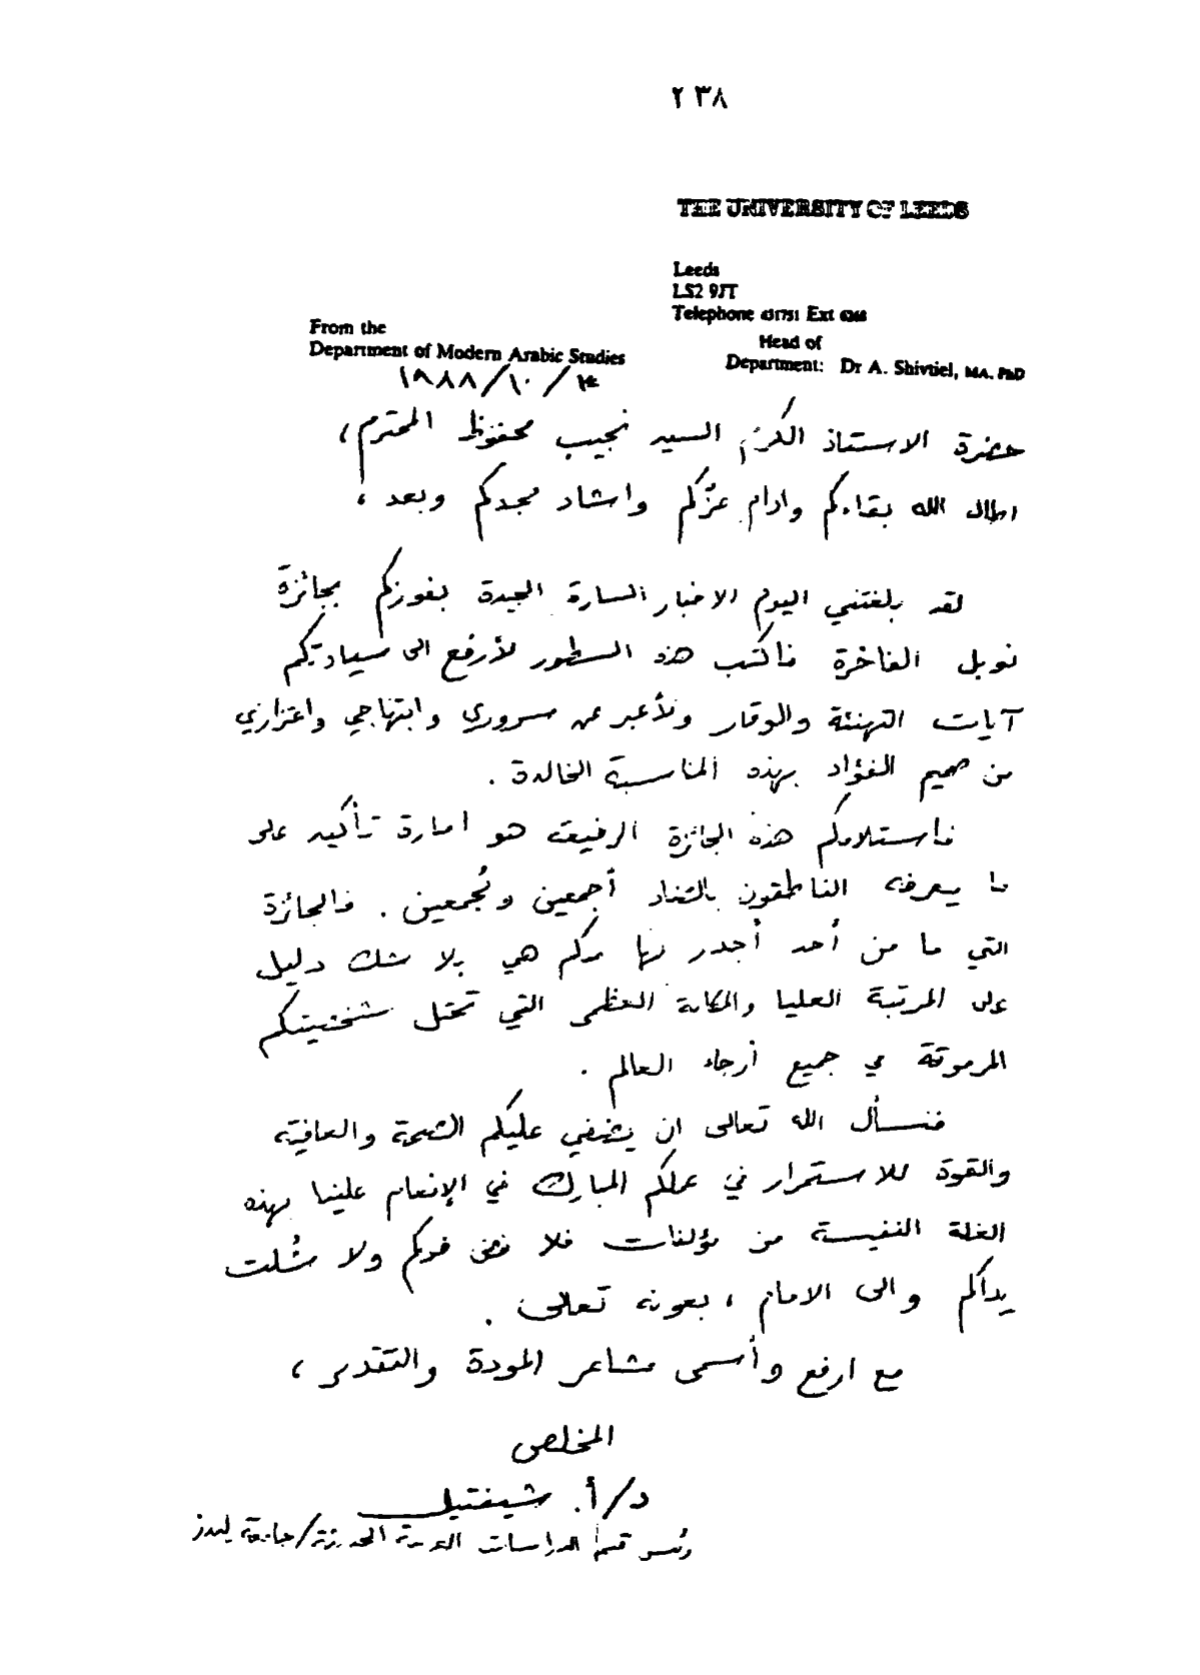 ٢٣٨
THE UNIVERSITY OF LEEDS
Leeds
LS2 9JT
Telephone 431751 Ext
From the
Department of Modern Arabic Studies
Head of
Department: Dr A. Shivtiel, MA. PhD
١٩٨٨/١٠/
حضرة الاستاذ الكريم السيد نجيب محفوظ المحترم،
اطال الله بقاءكم وادام عزّكم واشاد مجدكم وبعد ،
لقد بلغتني اليوم الاخبار السارة الجيدة بفوزكم بجائزة
نوبل الفاخرة فاكتب هذه السطور لأرفع الى سيادتكم
آيات التهنئة والوقار ولأعبر عن سروري وابتهاجي واعتزازي
من صميم الفؤاد بهذه المناسبة الخالدة .
فاستلامكم هذه الجائزة الرفيعة هو امارة تأكيد على
ما يعرفه الناطقون بالضاد أجمعين ومُجمعين . فالجائزة
التي ما من أحد أجدر بها منكم هي بلا شك دليل
على المرتبة العليا والمكانة العظمى التي تحتل شخصيتكم
المرموقة في جميع أرجاء العالم .
فنسأل الله تعالى ان يضفي عليكم الصحة والعافية
والقوة للاستمرار في عملكم المبارك في الإنعام علينا بهذه
الغلة النفيسة من مؤلفات فلا فض فوكم ولا شُلت
يداكم والى الامام ، بعونه تعالى .
مع ارفع وأسمى مشاعر المودة والتقدير ،
المخلص
د/أ. شيفتيل
رئيس قسم الدراسات العربية الحديثة/جامعة ليدز